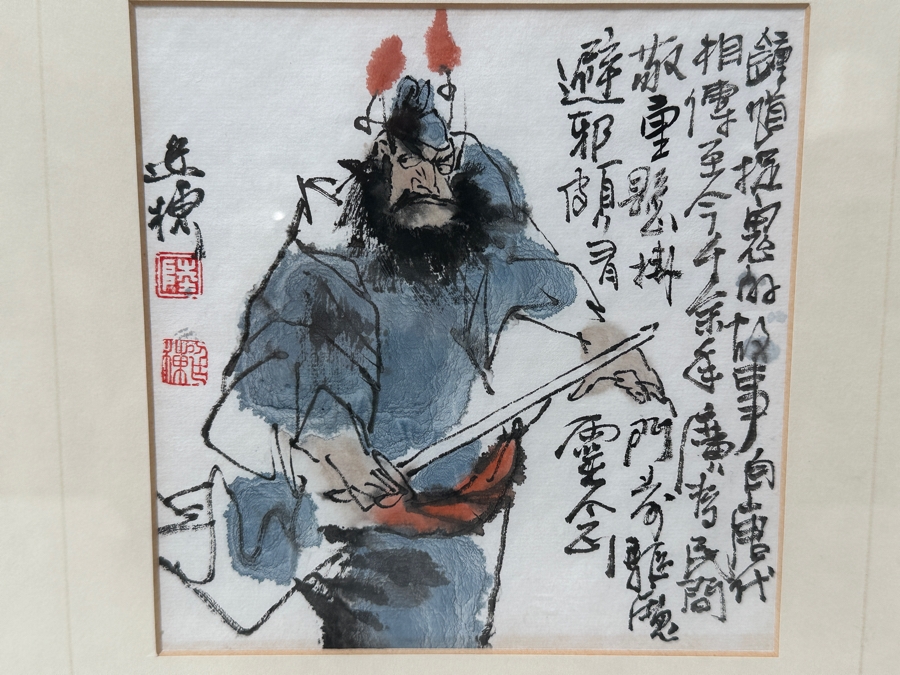 鍾馗捉鬼的故事自唐代
相傳至今千余年廣為民間
敬重懸掛門首可驅魔
避邪頗有靈
陸